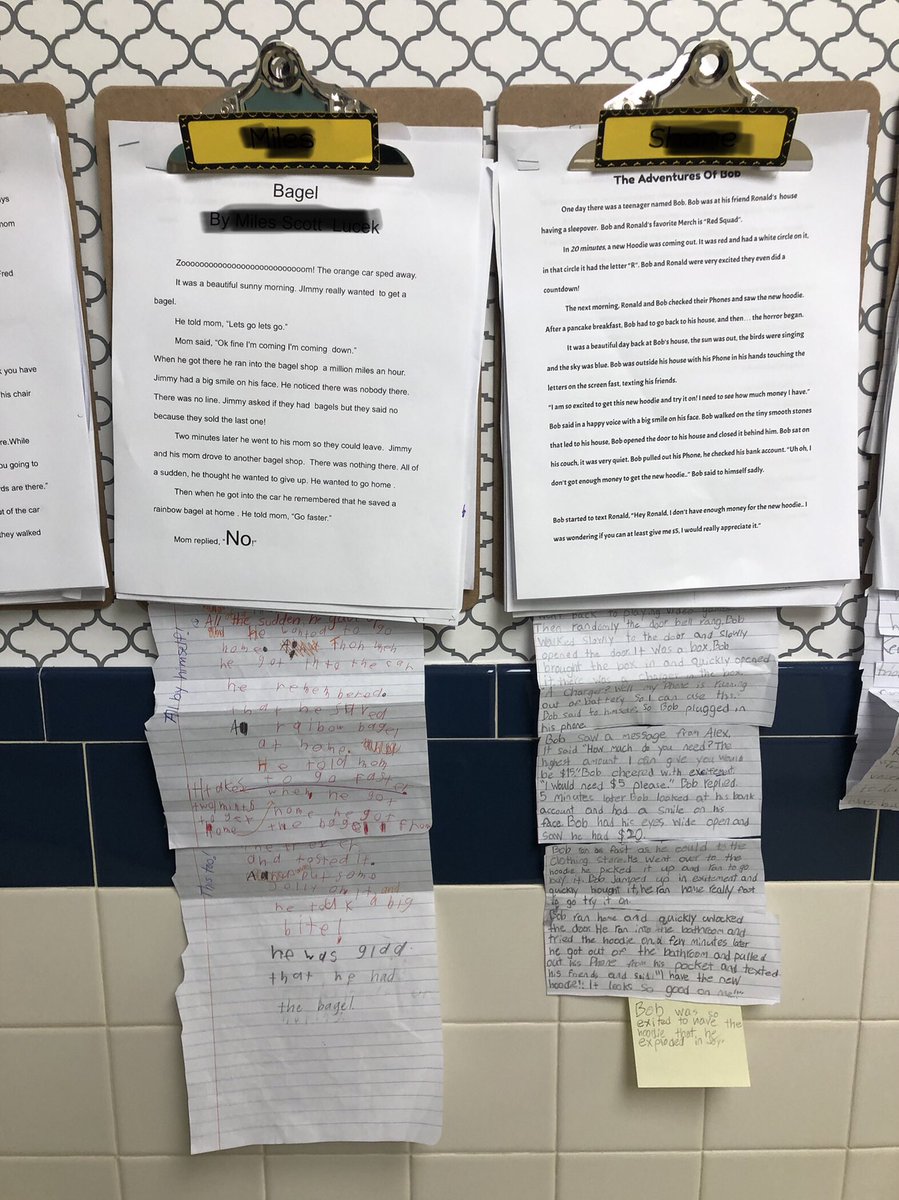 Bagel
Zoooooooooooooooooooooooooom! The orange car sped away.
It was a beautiful sunny morning. JImmy really wanted to get a
bagel.
He told mom, “Lets go lets go.”
Mom said, “Ok fine I'm coming I'm coming down.”
When he got there he ran into the bagel shop a million miles an hour.
Jimmy had a big smile on his face. He noticed there was nobody there.
There was no line. Jimmy asked if they had bagels but they said no
because they sold the last one!
Two minutes later he went to his mom so they could leave. Jimmy
and his mom drove to another bagel shop. There was nothing there. All of
a sudden, he thought he wanted to give up. He wanted to go home .
Then when he got into the car he remembered that he saved a
rainbow bagel at home . He told mom, “Go faster.”
Mom replied, “No!”
All the sudden, he
he wanted to go
home.
he got into the car
he
that he saved
A raibow bagel
at home.
He told mom
to go faster
when he got
home he got
the bagel from
and tosted it.
some
jelly on it and
he took a big
bite!
he was gldd
that he had
the bagel
All by himself
The Adventures Of Bob
One day there was a teenager named Bob. Bob was at his friend Ronald's house
having a sleepover. Bob and Ronald's favorite Merch is “Red Squad”.
In 20 minutes, a new Hoodie was coming out. It was red and had a white circle on it,
in that circle it had the letter “R”. Bob and Ronald were very excited they even did a
countdown!
The next morning, Ronald and Bob checked their Phones and saw the new hoodie.
After a pancake breakfast, Bob had to go back to his house, and then... the horror began.
It was a beautiful day back at Bob's house, the sun was out, the birds were singing
and the sky was blue. Bob was outside his house with his Phone in his hands touching the
letters on the screen fast, texting his friends.
“I am so excited to get this new hoodie and try it on! I need to see how much money I have.”
Bob said in a happy voice with a big smile on his face. Bob walked on the tiny smooth stones
that led to his house, Bob opened the door to his house and closed it behind him. Bob sat on
his couch, it was very quiet. Bob pulled out his Phone, he checked his bank account. “Uh oh, I
don't got enough money to get the new hoodie.. Bob said to himself sadly.
Bob started to text Ronald, “Hey Ronald, I don't have enough money for the new hoodie.. I
was wondering if you can at least give me $5, I would really appreciate it.”
back to playing video
Then randomly the door bell rang. Bob
walked slowly to the door and slowly
opened the door. It was a box. Bob
brought the box in and quickly opened
it there was a charger in the box.
“A charger? Well my Phone is running
out of battery so I can use this.”
Bob said to himself, so Bob plugged in
his phone.
Bob saw a message from Alex,
it said “How much do you need? The
highest amount I can give you would
be $15.” Bob cheered with excitement
“I would need $5 please.” Bob replied.
5 minutes later Bob looked at his bank
account and had a smile on his
face. Bob had his eyes wide open and
saw he had $20.
Bob ran as fast as he could to the
clothing store. He went over to the
hoodie he picked it up and ran to go
buy it. Bob jumped up in excitement and
quickly bought it, he ran home really fast
to go try it on.
Bob ran home and quickly unlocked
the door. He ran into the bathroom and
tried the hoodie on a few minutes later
he got out of the bathroom and pulled
out his Phone from his pocket and texted
his friends and said “I have the new
hoodie!! It looks so good on me!”
Bob was so
exited to have the
hoodie that he
exploded in joy.